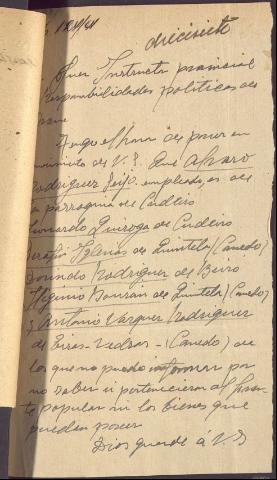 diecisiete
Juez Instructor provincial
Responsabilidades politicas de
Tengo el honor de poner en
de V. S. que Alvaro
Rodriguez empleado, es de
la parroquia de Cudeiro
Leonardo Quiroga de Cudeiro
Serafin Iglesias de Quintela (Canedo)
Rodriguez de Beiro
Higinio de Quintela (Canedo)
y Antonio Vazquez Rodriguez
de Eiras-Vedras - (Canedo) de
los que no puedo informar por
no saber si pertenecieron al Fren-
te popular ni los bienes que
puedan poseer
Dios guarde á V. S